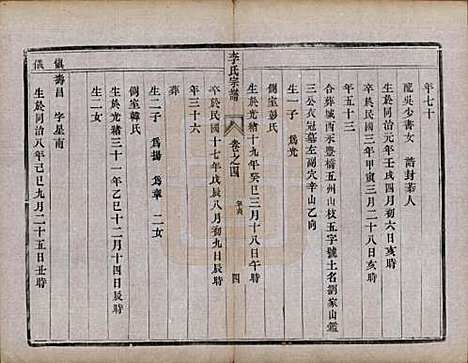 年七十
配吳少書女 誥封若人
生於同治元年壬戌四月初六日亥時
歿於民國三年甲寅三月二十八日亥時
年五十三
合葬城西永豐橋五州山枝五字號土名劉家山鑑
三公衣冠墓左副穴辛山乙向
生一子 爲光
側室彭氏
生於光緒十九年癸巳三月十八日午時
李氏宗譜
卷之四
四
卒於民國十七年戊辰八月初九日辰時
年三十六
葬
生二子 爲揚 爲章 二女
側室韓氏
生於光緒三十一年乙巳十二月十四日辰時
生二女
儀壽昌 字星南
生於同治八年己巳九月二十五日丑時
儀